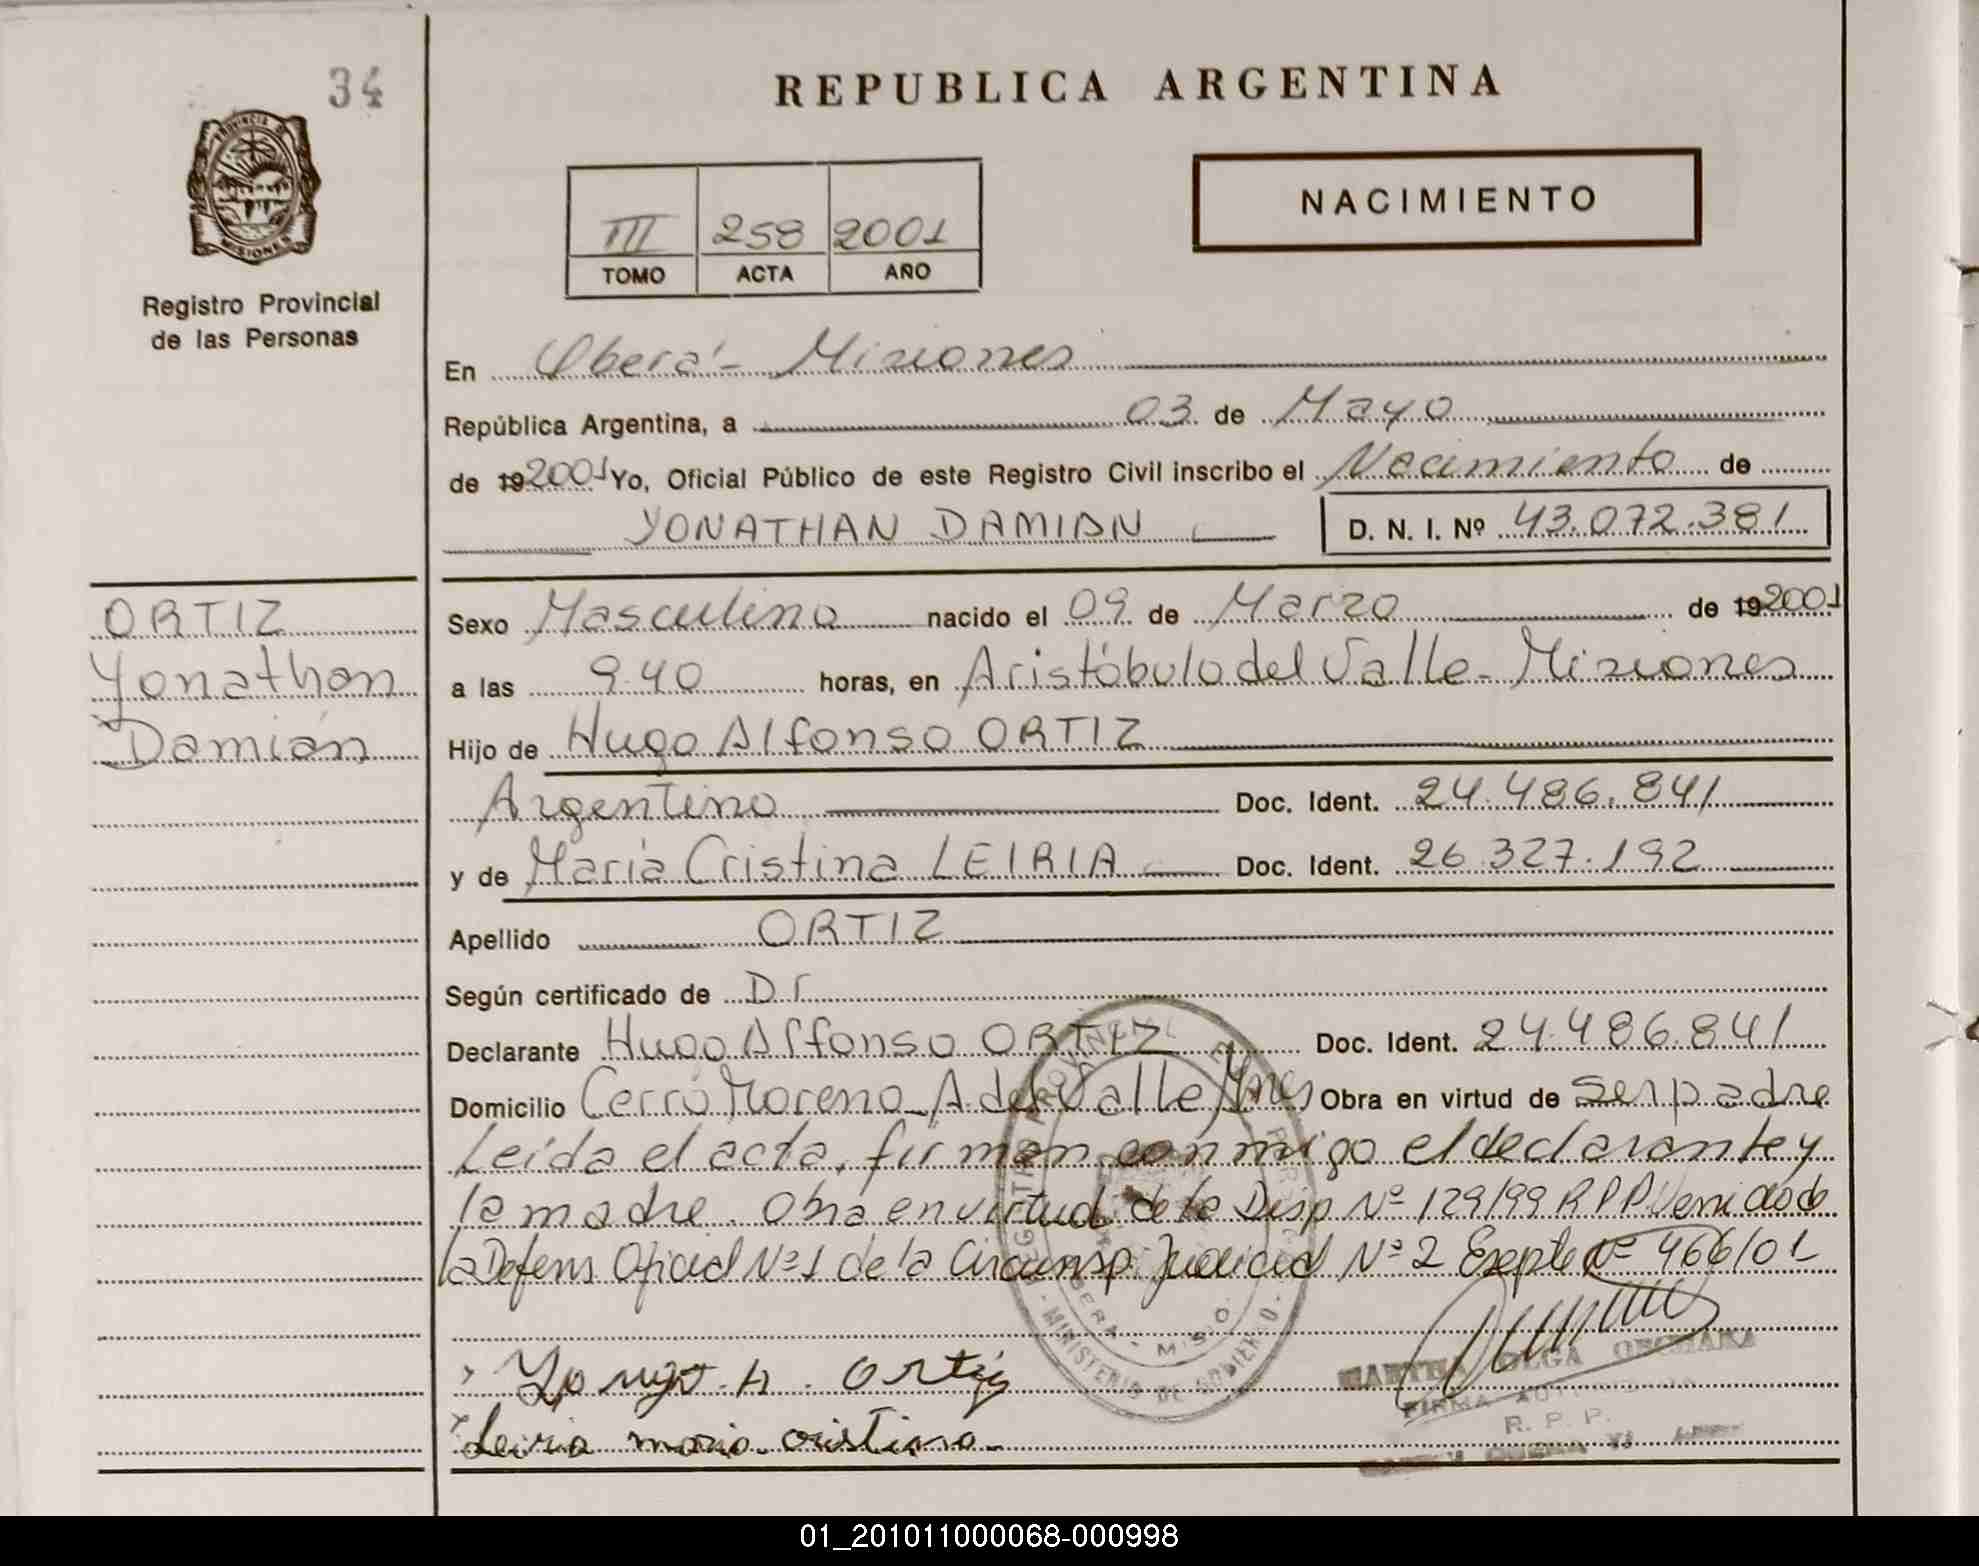 34
REPUBLICA ARGENTINA
PROVINCIA DE
MISIONES
Registro Provincial
de las Personas
NACIMIENTO
III 258 2001
TOMO ACTA AÑO
En Oberá - Misiones
República Argentina, a 03 de Mayo
de 19 2001 Yo, Oficial Público de este Registro Civil inscribo el Nacimiento de
YONATHAN DAMIAN D. N. I. Nº 43.072.381
ORTIZ
Yonathan
Damián
Sexo Masculino nacido el 09 de Marzo de 19 2001
a las 9.40 horas, en Aristóbulo del Valle - Misiones
Hijo de Hugo Alfonso ORTIZ
Argentino Doc. Ident. 24.486.841
y de María Cristina LEIRIA Doc. Ident. 26.327.192
Apellido ORTIZ
Según certificado de Dr
Declarante Hugo Alfonso ORTIZ Doc. Ident. 24.486.841
Domicilio Cerro Moreno - A. del Valle Mnes Obra en virtud de ser padre
Leída el acta, firman conmigo el declarante y
la madre. Obra en virtud de la Disp Nº 129/99 R P P. Venido de
la Defens Oficial Nº 1 de la Circunsp. Judicial Nº 2 Expte Nº 466/01
A. Ortiz
Leiria maria cristina
REGISTRO PROVINCIAL
MINISTERIO DE GOBIERNO
OLGA
FIRMA AUTORIZADA
R. P. P.
01_201011000068-000998